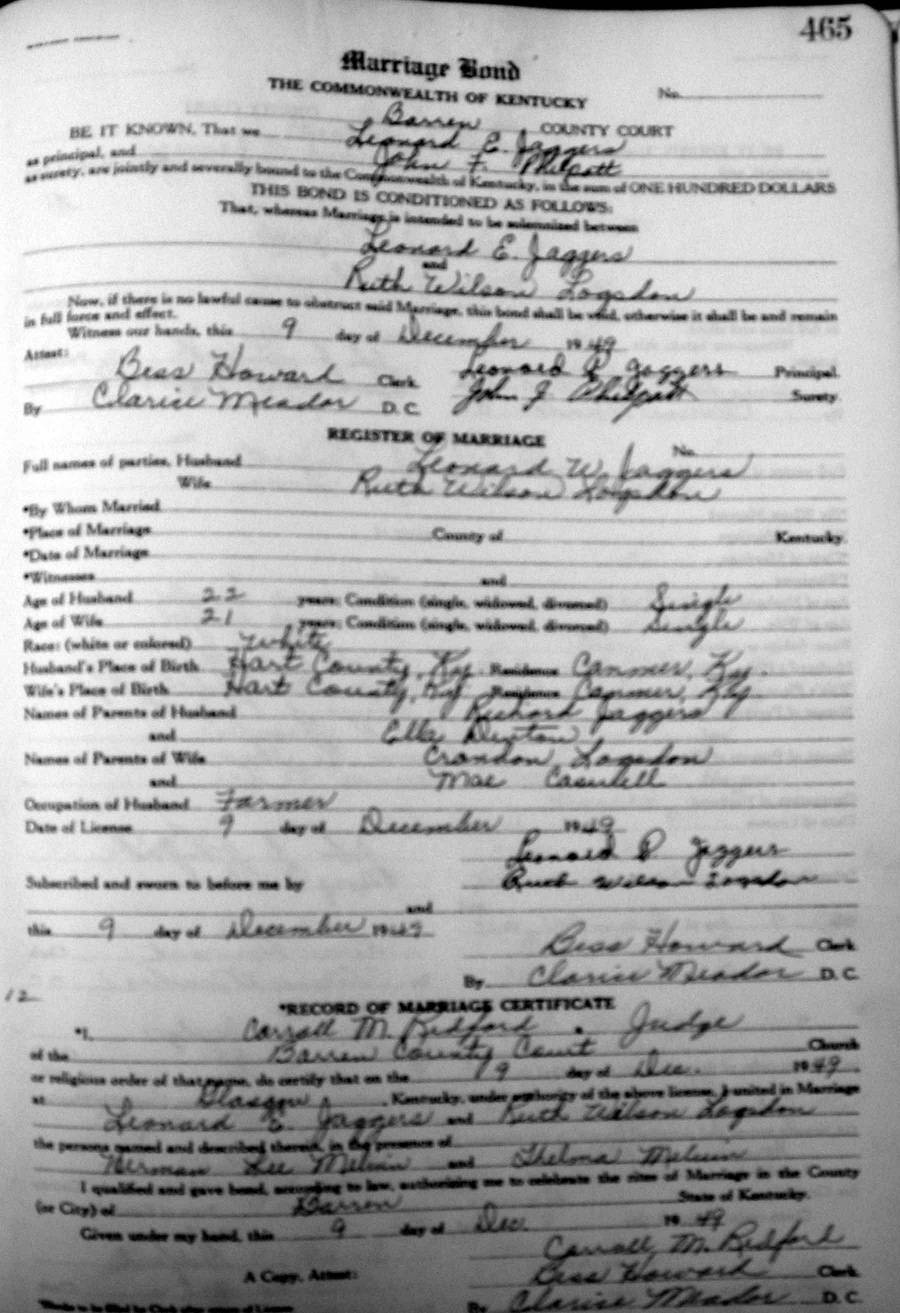 465
Marriage Bond
THE COMMONWEALTH OF KENTUCKY
No.
Barren COUNTY COURT
BE IT KNOWN, That we Leonard E. Jaggers
as principal, and John F. Philpott
as surety, are jointly and severally bound to the Commonwealth of Kentucky, in the sum of ONE HUNDRED DOLLARS
THIS BOND IS CONDITIONED AS FOLLOWS:
That, whereas Marriage is intended to be solemnized between
Leonard E. Jaggers
and
Ruth Wilson Logsdon
Now, if there is no lawful cause to obstruct said Marriage, this bond shall be void, otherwise it shall be and remain
in full force and effect.
Witness our hands, this 9 day of December 1949
Attest:
Bess Howard Clerk Leonard P Jaggers Principal
By Clarise Meador D. C. John J Philpott Surety
REGISTER OF MARRIAGE
No.
Full names of parties, Husband Leonard W. Jaggers
Wife Ruth Wilson Logsdon
*By Whom Married
*Place of Marriage County of Kentucky.
*Date of Marriage
*Witnesses and
Age of Husband 22 years; Condition (single, widowed, divorced) Single
Age of Wife 21 years; Condition (single, widowed, divorced) Single
Race: (white or colored) White
Husband's Place of Birth Hart County, Ky. Residence Canmer, Ky.
Wife's Place of Birth Hart County, Ky Residence Canmer, Ky
Names of Parents of Husband Richard Jaggers
and Ella Denton
Names of Parents of Wife Crandon Logsdon
and Mae
Occupation of Husband Farmer
Date of License 9 day of December 1949
Leonard P Jaggers
Subscribed and sworn to before me by Ruth Wilson Logsdon
and
this 9 day of December 1949
Bess Howard Clerk
By Clarise Meador D. C.
12
*RECORD OF MARRIAGE CERTIFICATE
*I, Carroll M. Redford, Judge
of the Barren County Court Church
or religious order of that name, do certify that on the 9 day of Dec. 1949
at Glasgow, Kentucky, under authority of the above license, I united in Marriage
Leonard E. Jaggers and Ruth Wilson Logsdon
the persons named and described therein, in the presence of
Herman Lee Melvin and Thelma Melvin
I qualified and gave bond, according to law, authorizing me to celebrate the rites of Marriage in the County
(or City) of Barren State of Kentucky.
Given under my hand, this 9 day of Dec. 1949
Carroll M. Redford
A Copy, Attest: Bess Howard Clerk
By Clarise Meador D. C.